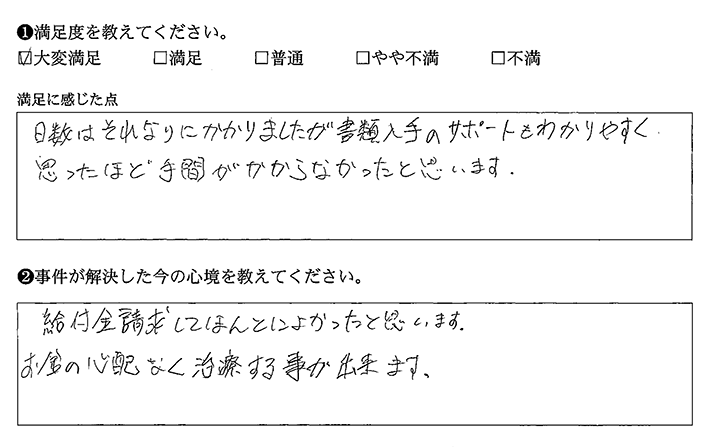 ❶満足度を教えてください。
☑大変満足 □満足 □普通 □やや不満 □不満
満足に感じた点
日数はそれなりにかかりましたが書類入手のサポートもわかりやすく
思ったほど手間がかからなかったと思います.
❷事件が解決した今の心境を教えてください。
給付金請求してほんとによかったと思います.
お金の心配なく治療する事が出来ます、